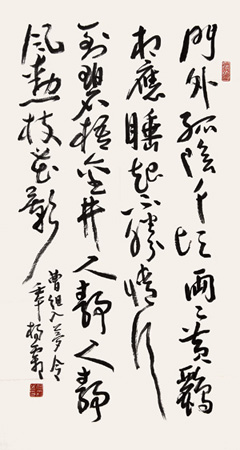 門外綠陰千頃兩々黃鸝
相應睡起不勝情行
到碧梧金井人靜人靜
風動枝花影
曾組如夢令